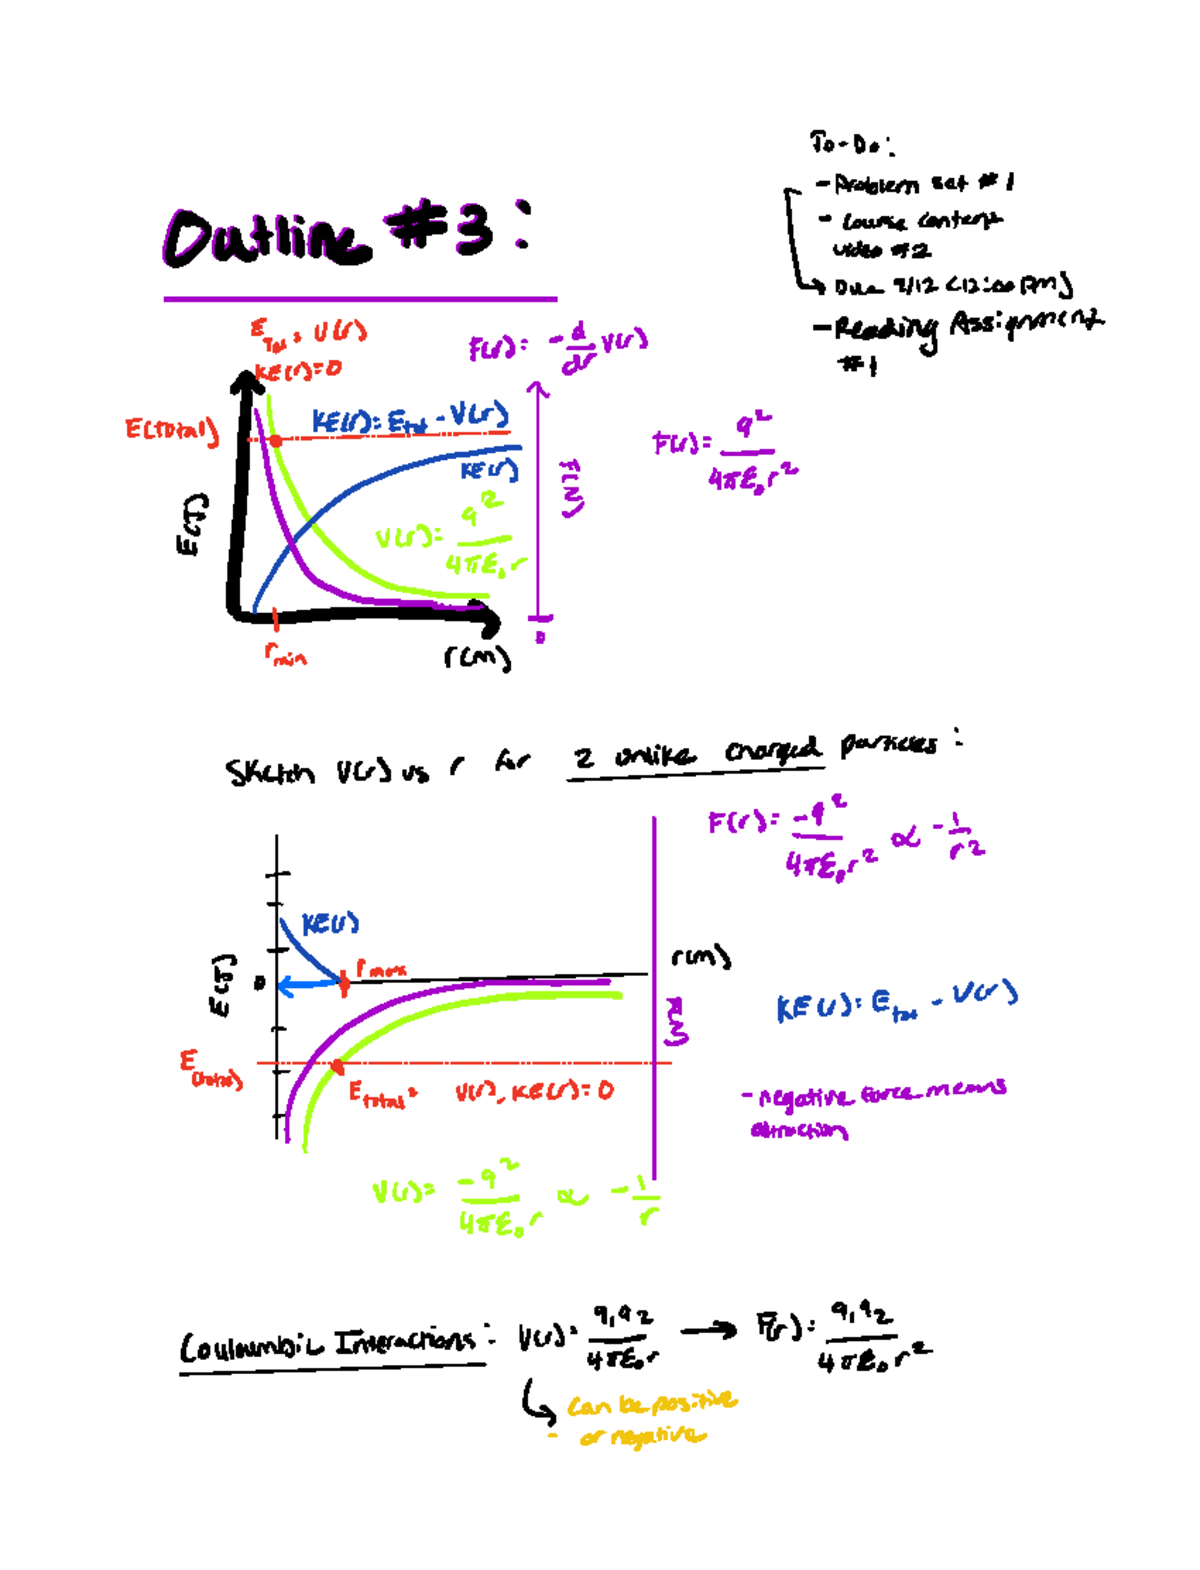 To-Do:
- Problem set #1
- Course content
video #2
Due 9/12 (12:00 PM)
- Reading Assignment
#1
Outline #3:
E_Tot = V(r)
KE(r)=0
F(r) = -d/dr V(r)
E(total)
KE(r) = E_tot - V(r)
KE(r)
F(N)
F(r) = q²/4πε₀r²
E(J)
V(r) = q²/4πε₀r
r_min
r(m)
0
Sketch V(r) vs r for 2 unlike charged particles:
F(r) = -q²/4πε₀r² ∝ -1/r²
KE(r)
r_max
r(m)
E(J)
0
F(N)
KE(r) = E_tot - V(r)
E_(total)
E_total = V(r), KE(r) = 0
- negative force means
attraction
V(r) = -q²/4πε₀r ∝ -1/r
Couloumbic Interactions: V(r) = q₁q₂/4πε₀r → F(r) = q₁q₂/4πε₀r²
can be positive
- or negative